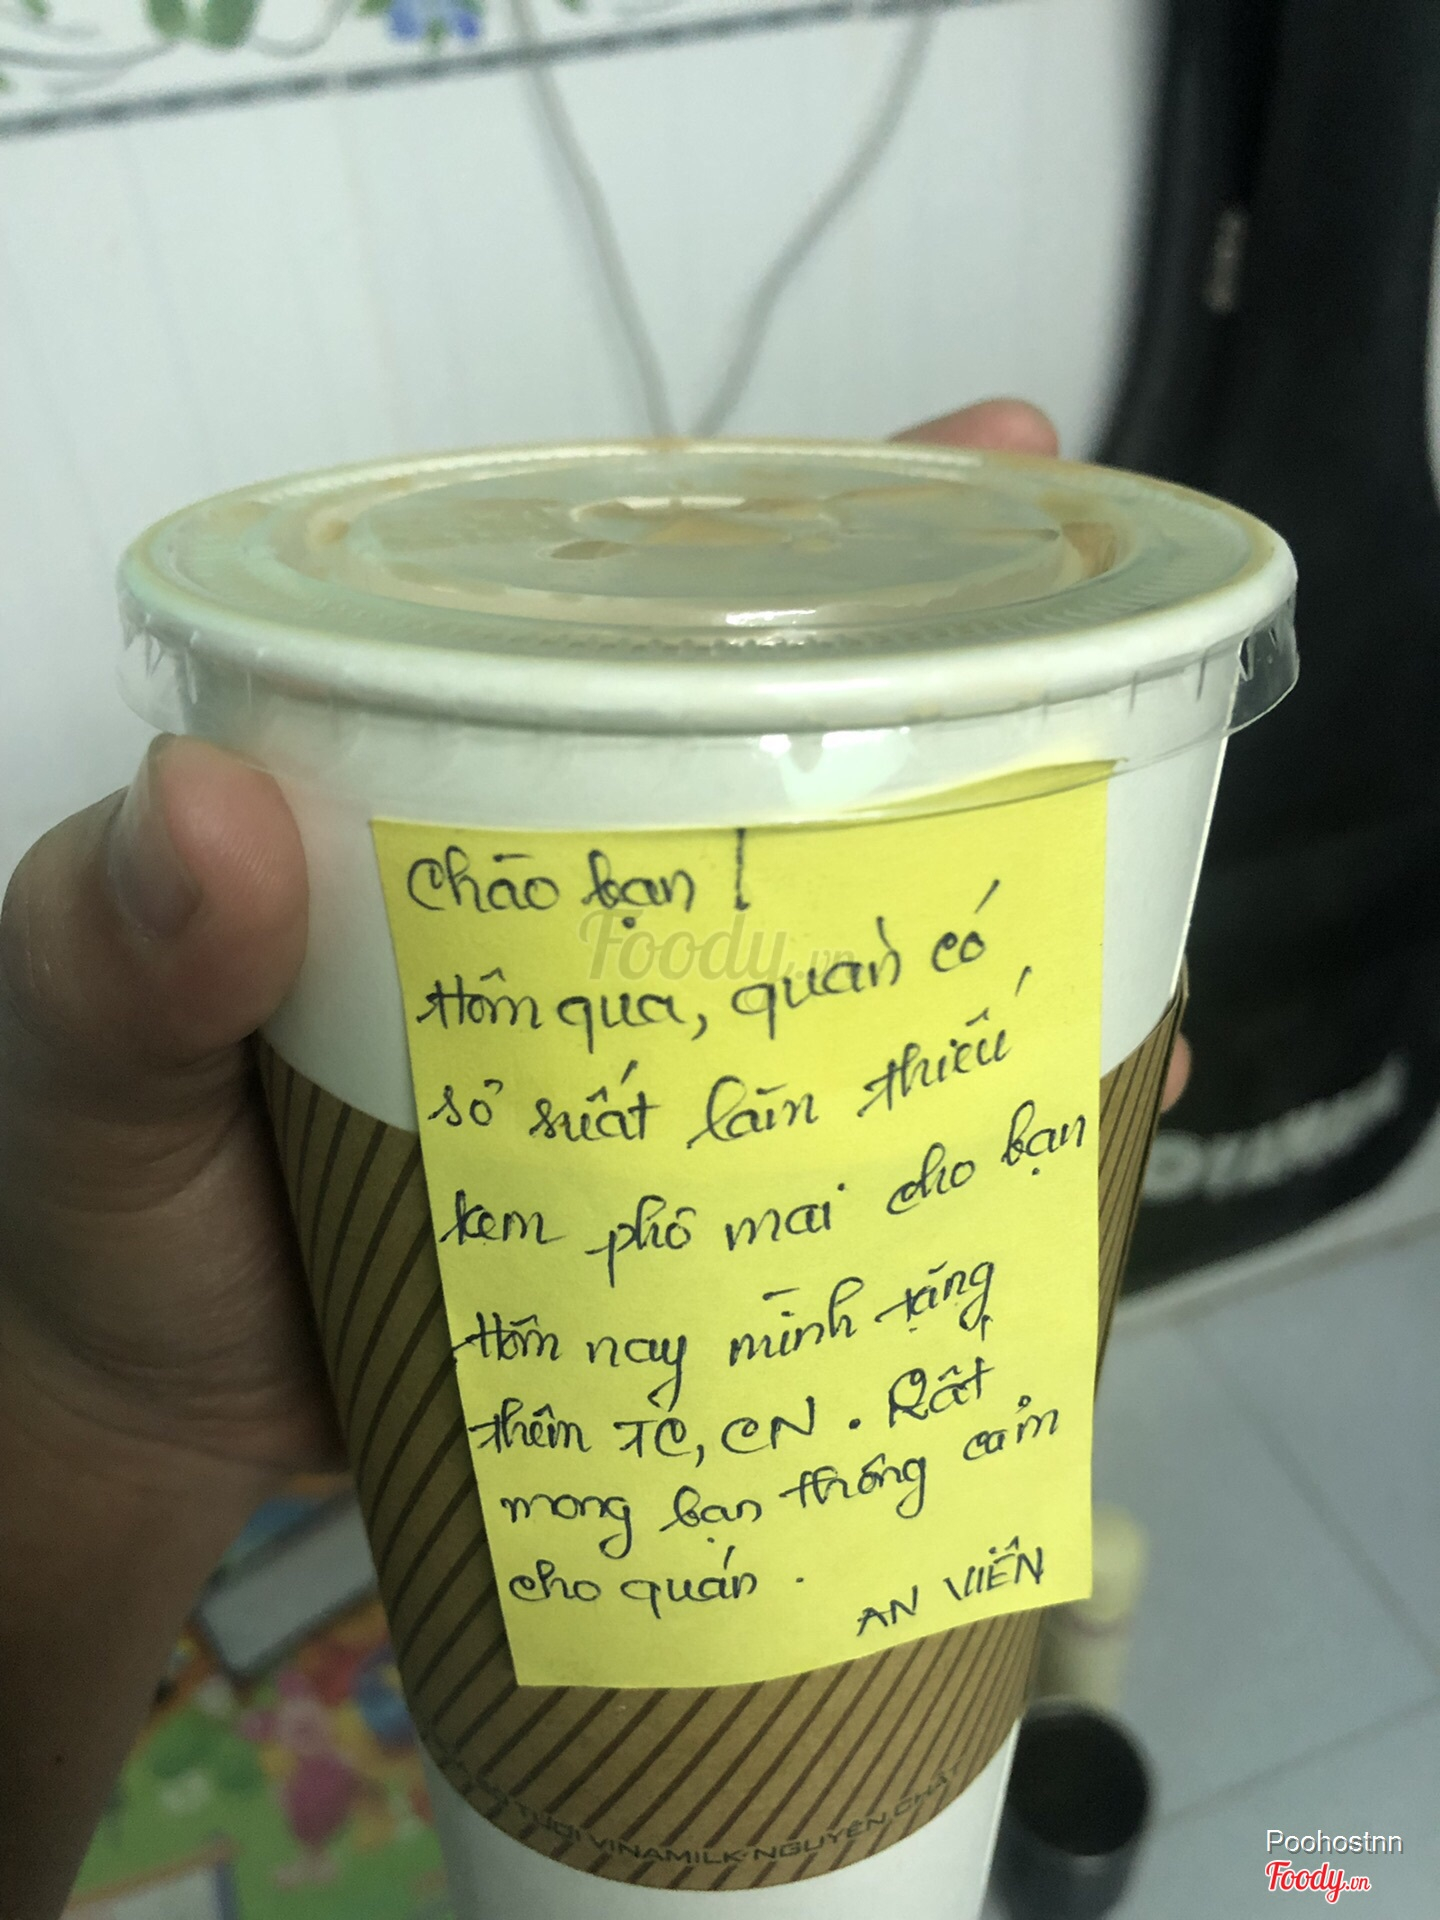 Chào bạn !
Hôm qua, quán có
sơ suất làm thiếu
kem phô mai cho bạn
Hôm nay mình tặng
thêm TC, CN. Rất
mong bạn thông cảm
cho quán.
AN VIÊN
Foody.vn
TƯƠI VINAMILK·NGUYÊN CHẤT
Poohostnn
Foody.vn